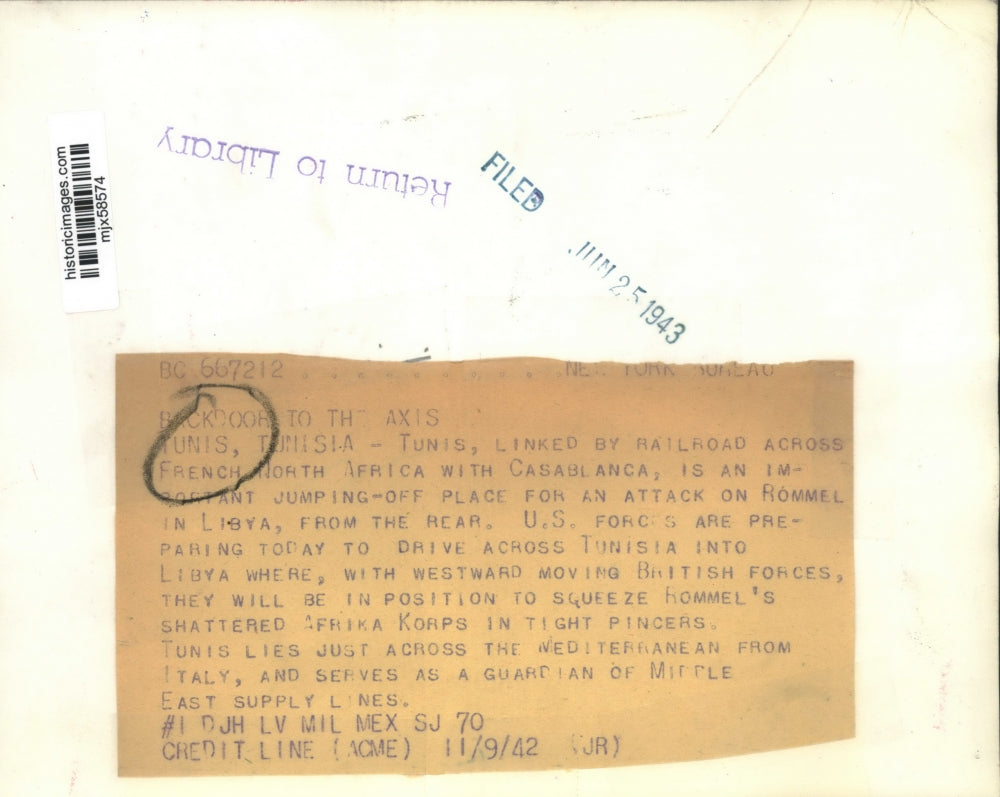 historicimages.com
mjx58574
Return to Library
FILED
JUN 25 1943
BC 667212 . . . . . . . . . . NEW YORK BUREAU
BACKDOOR TO THE AXIS
TUNIS, TUNISIA - TUNIS, LINKED BY RAILROAD ACROSS
FRENCH NORTH AFRICA WITH CASABLANCA, IS AN IM-
PORTANT JUMPING-OFF PLACE FOR AN ATTACK ON ROMMEL
IN LIBYA, FROM THE REAR. U.S. FORCES ARE PRE-
PARING TODAY TO DRIVE ACROSS TUNISIA INTO
LIBYA WHERE, WITH WESTWARD MOVING BRITISH FORCES,
THEY WILL BE IN POSITION TO SQUEEZE ROMMEL'S
SHATTERED AFRIKA KORPS IN TIGHT PINCERS.
TUNIS LIES JUST ACROSS THE MEDITERRANEAN FROM
ITALY, AND SERVES AS A GUARDIAN OF MIDDLE
EAST SUPPLY LINES.
#1 DJH LV MIL MEX SJ 70
CREDIT LINE (ACME) 11/9/42 (JR)